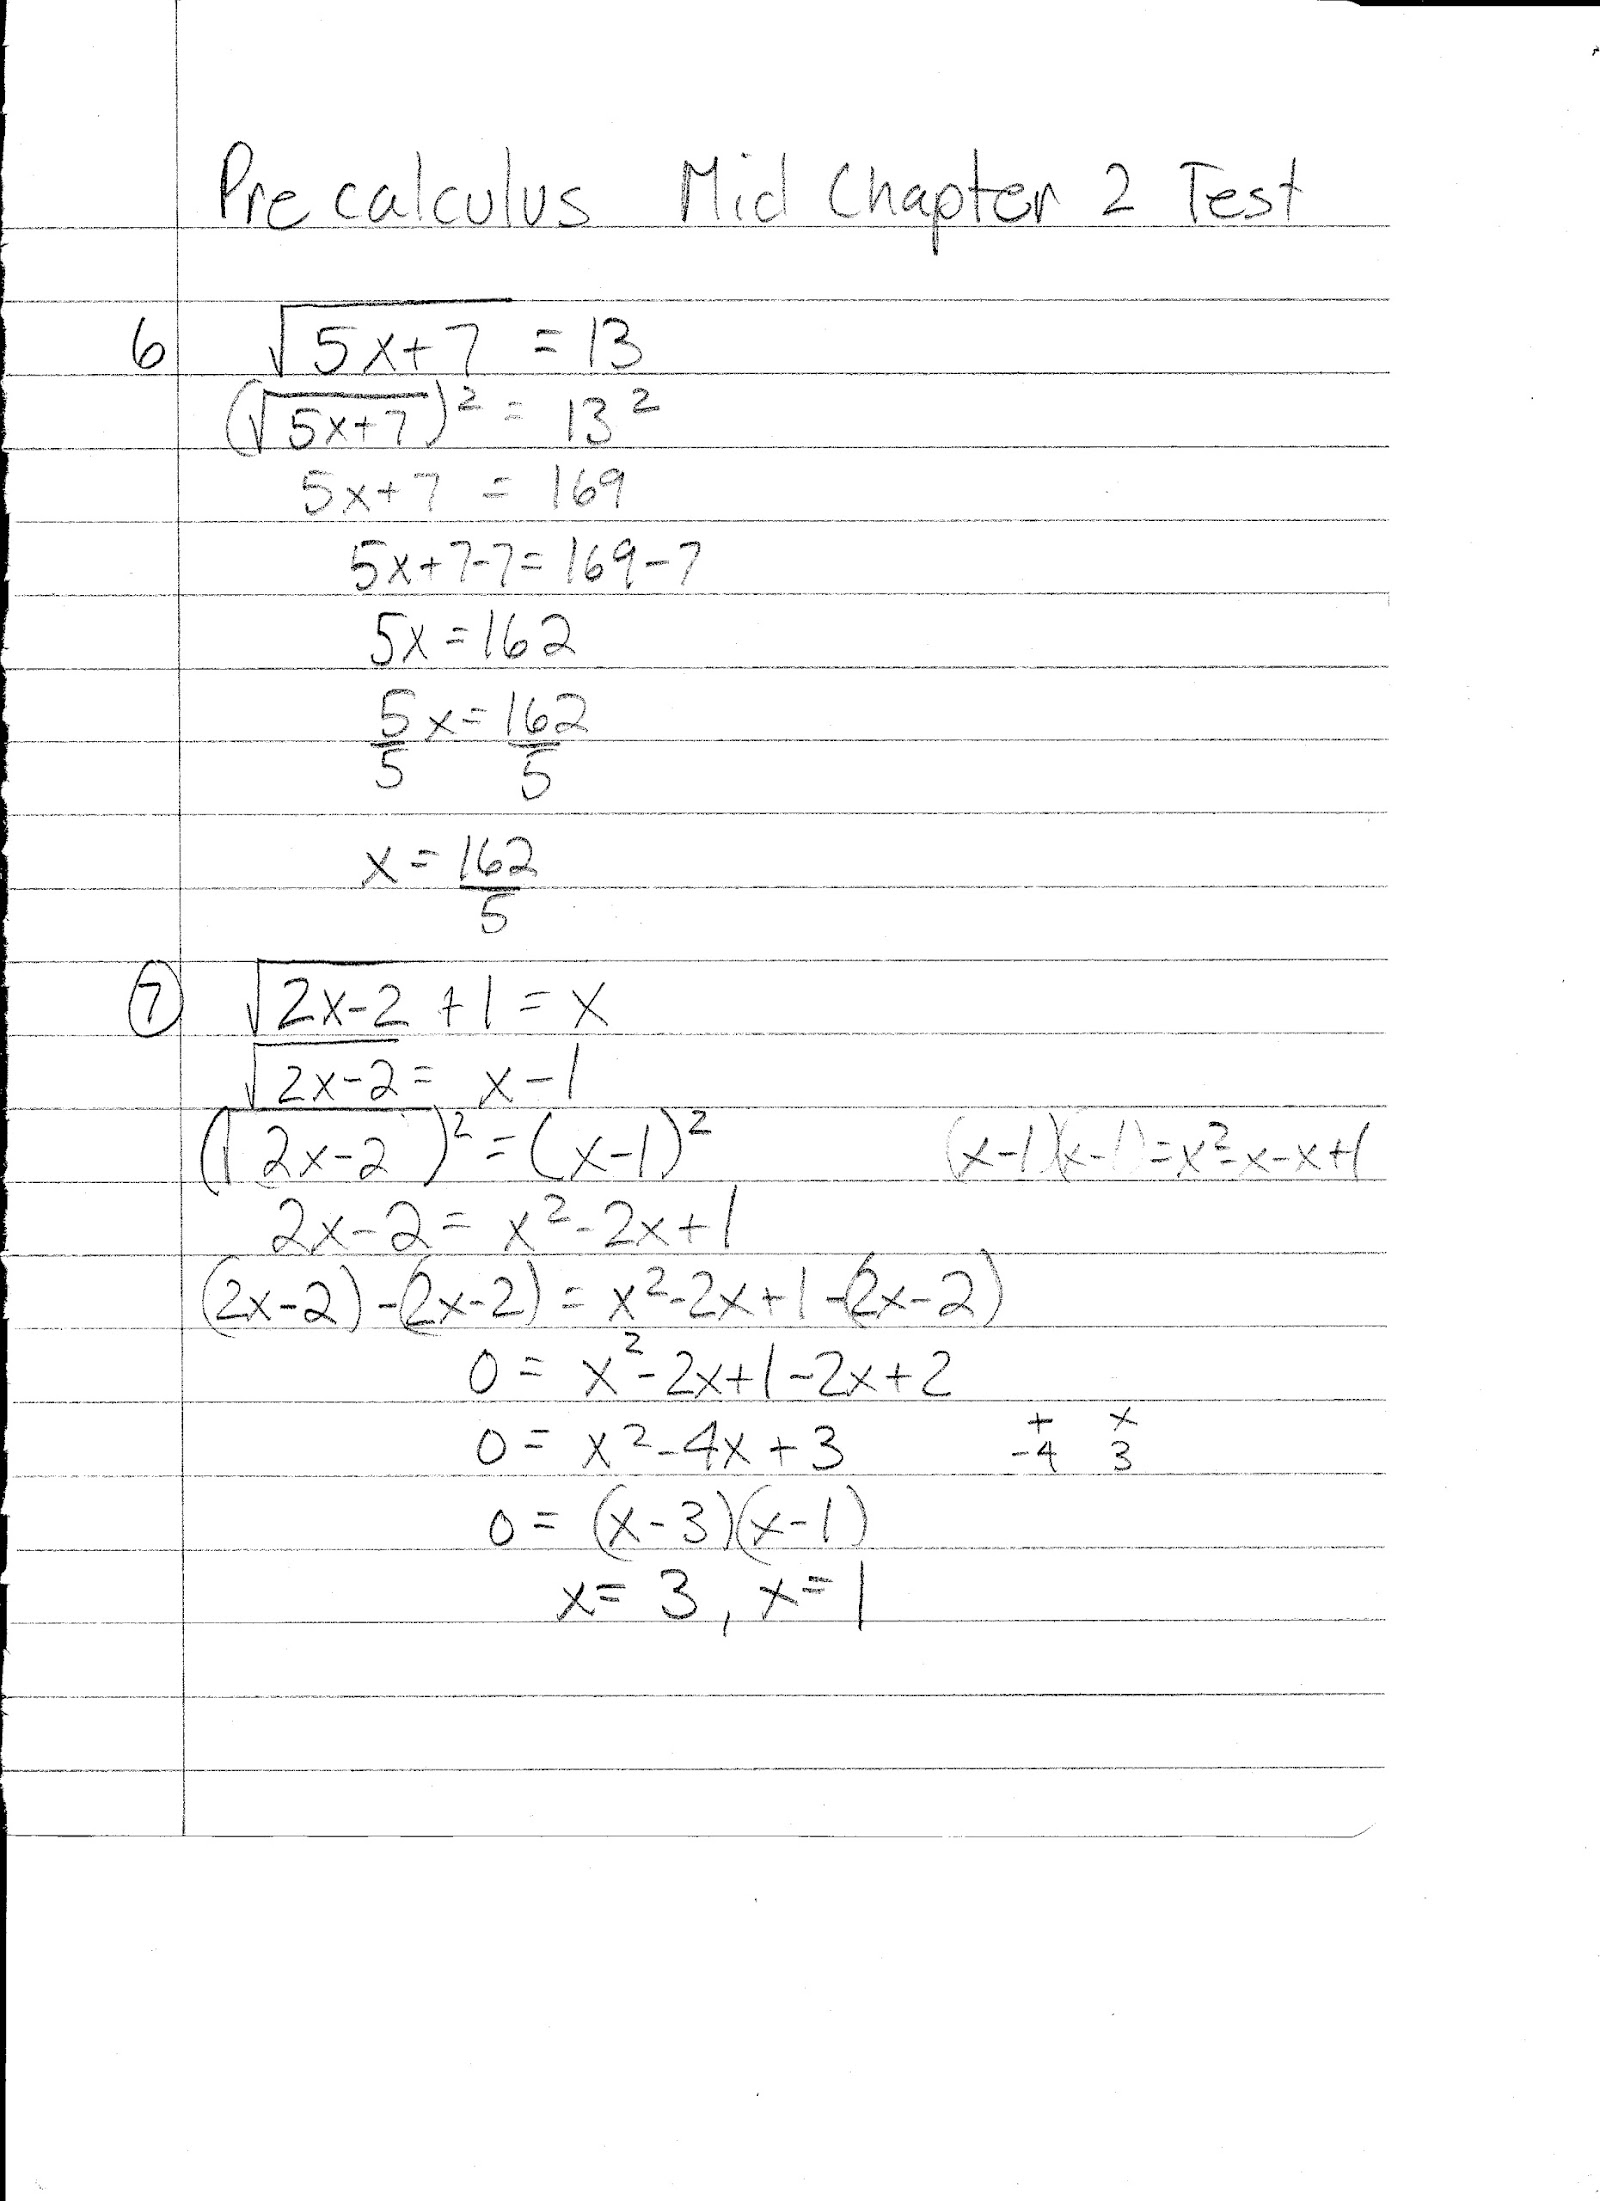 Precalculus Mid Chapter 2 Test
6 √5x+7 = 13
(√5x+7)² = 13²
5x+7 = 169
5x+7-7= 169-7
5x=162
5/5 x= 162/5
x= 162/5
7 √2x-2 +1 = x
√2x-2 = x-1
(√2x-2)² = (x-1)² (x-1)(x-1)=x²-x-x+1
2x-2 = x²-2x+1
(2x-2)-(2x-2) = x²-2x+1-(2x-2)
0 = x²-2x+1-2x+2
+ x
0 = x²-4x+3 -4 3
0 = (x-3)(x-1)
x= 3, x=1